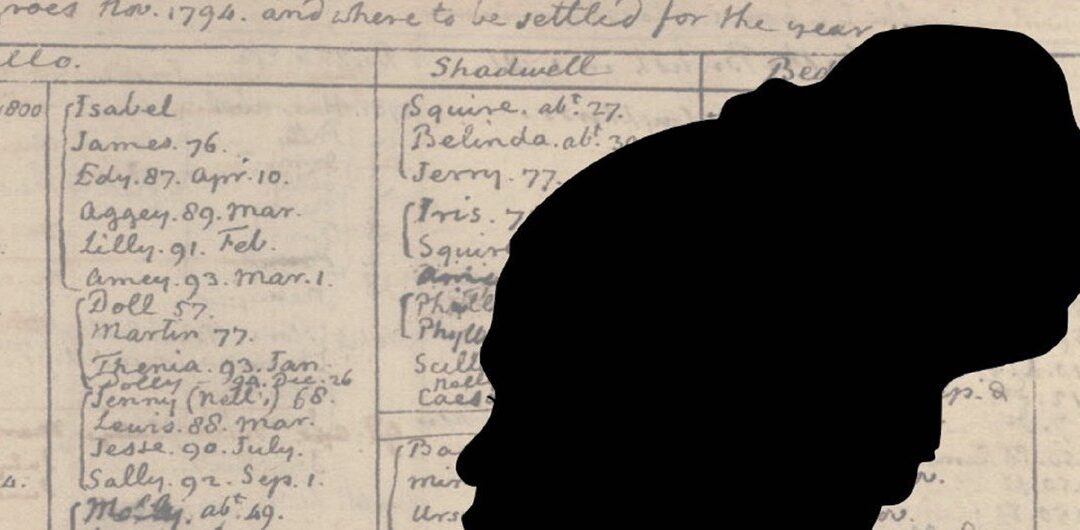 roes Nov. 1794. and where to be settled for the year
llo.
Shadwell
Bed
1800
Isabel
James. 76.
Edy. 87. Apr. 10.
Aggey. 89. Mar.
Lilly. 91. Feb.
Amey. 93. Mar. 1.
Doll 57.
Martin 77.
Thenia. 93. Jan
Dolly - 94. Dec. 26
Jenny (Nell's) 68.
Lewis. 88. Mar.
Jesse. 90. July.
Sally. 92. Sep. 1.
4.
Molly. abt. 49.
Squire. abt. 27.
Belinda. abt. 39
Jerry. 77.
Iris. 7
Squir
Phill
Phyll
Scill
Caes
Ba
Urs
p. 2